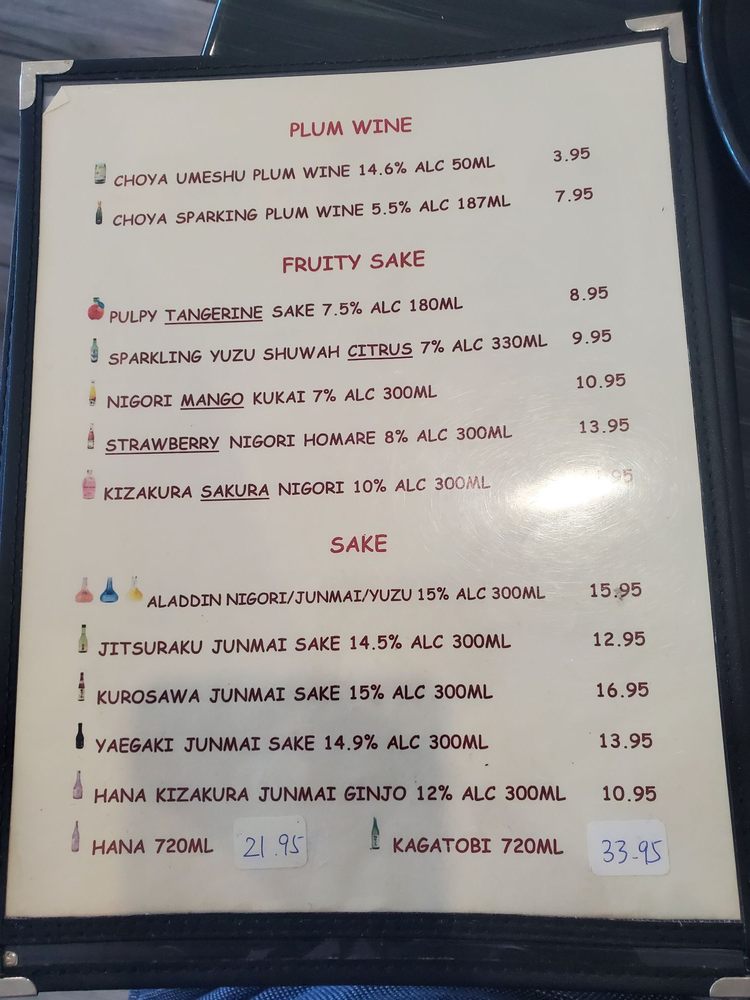 PLUM WINE
CHOYA UMESHU PLUM WINE 14.6% ALC 50ML 3.95
CHOYA SPARKING PLUM WINE 5.5% ALC 187ML 7.95
FRUITY SAKE
PULPY TANGERINE SAKE 7.5% ALC 180ML 8.95
SPARKLING YUZU SHUWAH CITRUS 7% ALC 330ML 9.95
NIGORI MANGO KUKAI 7% ALC 300ML 10.95
STRAWBERRY NIGORI HOMARE 8% ALC 300ML 13.95
KIZAKURA SAKURA NIGORI 10% ALC 300ML
SAKE
ALADDIN NIGORI/JUNMAI/YUZU 15% ALC 300ML 15.95
JITSURAKU JUNMAI SAKE 14.5% ALC 300ML 12.95
KUROSAWA JUNMAI SAKE 15% ALC 300ML 16.95
YAEGAKI JUNMAI SAKE 14.9% ALC 300ML 13.95
HANA KIZAKURA JUNMAI GINJO 12% ALC 300ML 10.95
HANA 720ML 21.95 KAGATOBI 720ML 33.95